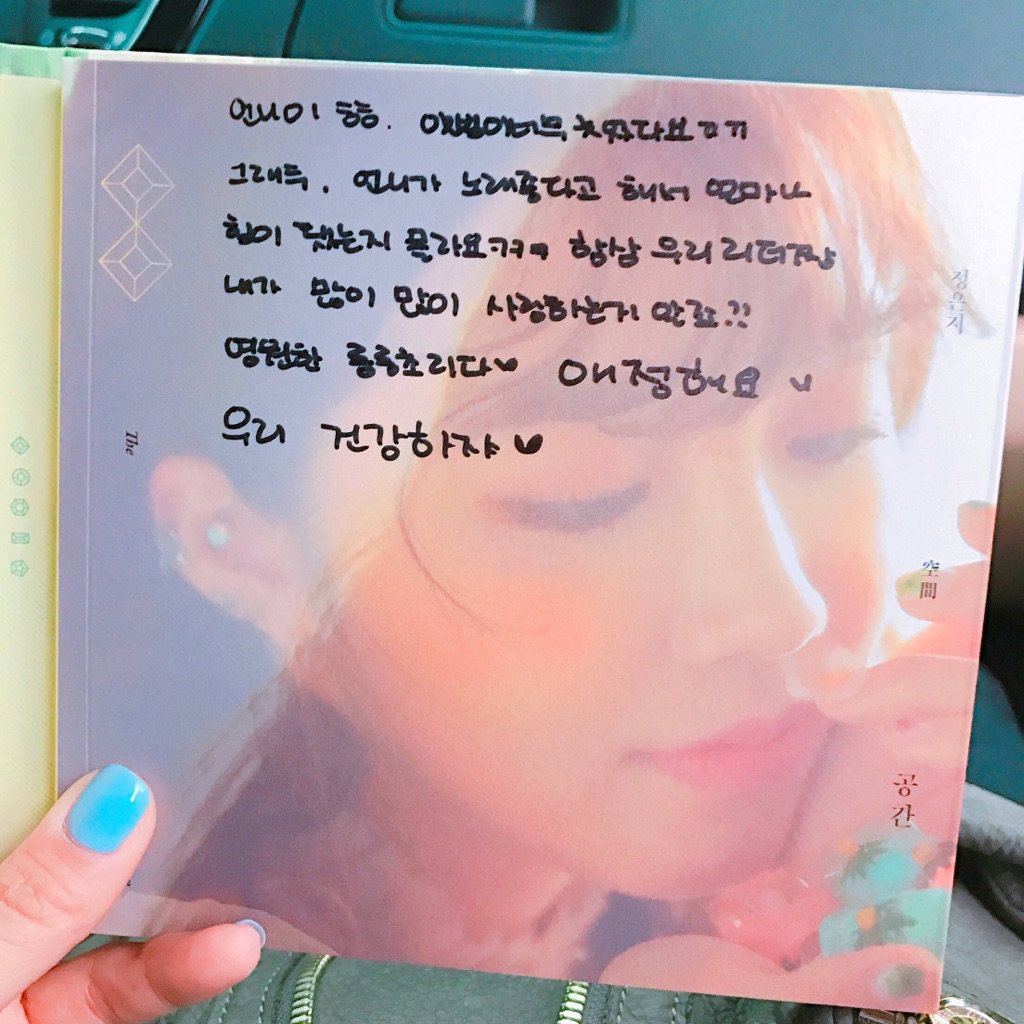 언니이 흐흐. 이번 너무 보ㄲㄱ
그래두, 언니가 노래좋다고 해서 얼마나
힘이 됐는지 몰라요ㅋㅋㅋ 항상 우리 리더짱
내가 많이 많이 사랑하는거 알죠??
영원한 롱롱초리다♥ 애정해요
우리 건강하쟈♥
정은지
The
空間
공간